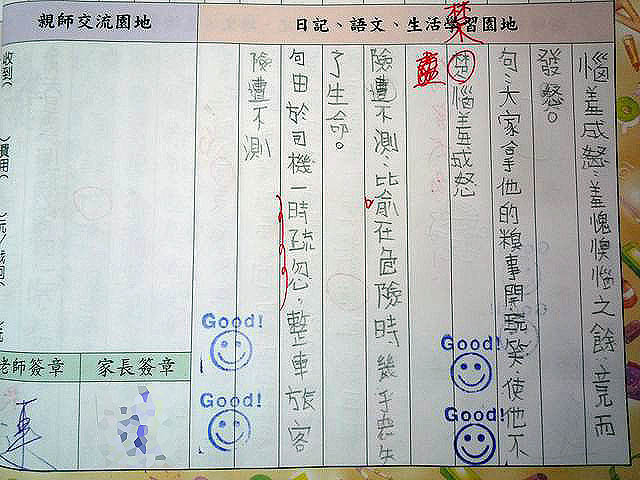 日記、語文、生活學習園地
親師交流園地
惱羞成怒：羞愧懊惱之餘，竟而
發怒。
句：大家拿他的糗事開玩笑，使他不
禁
惱羞成怒
險遭不測：比俞在危險時幾乎喪失
了生命。
句由於司機一時疏忽，整車旅客
險遭不測
Good!
Good!
Good!
Good!
家長簽章
老師簽章